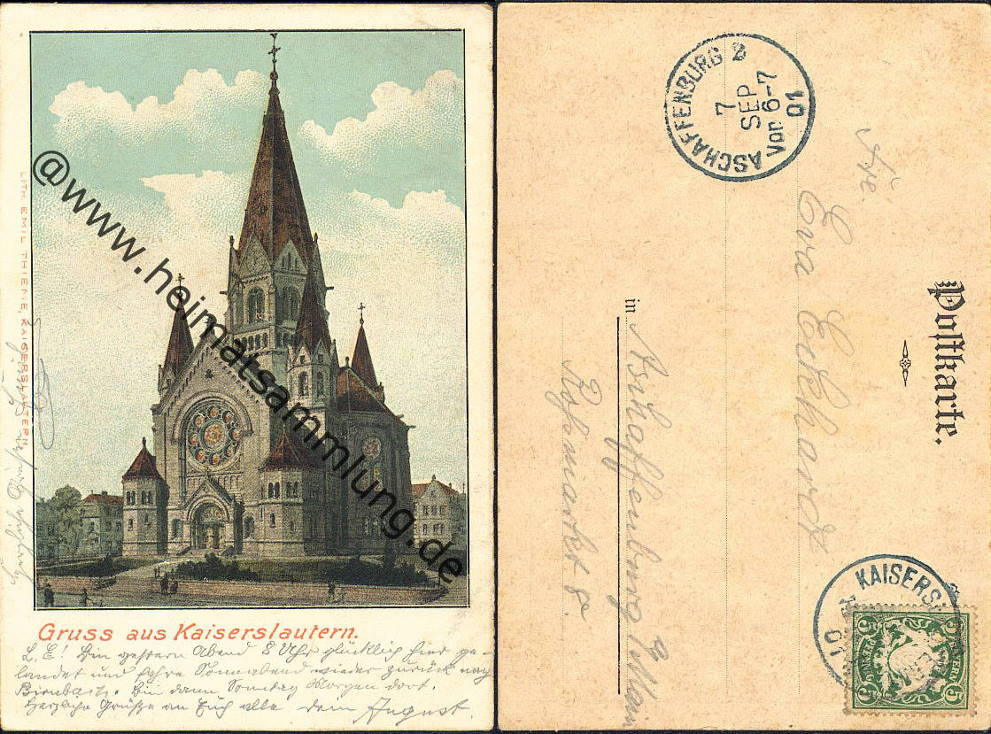 @www.heimatsammlung.de
LITH. EMIL THIEME, KAISERSLAUTERN.
Gruss aus Kaiserslautern.
L. E! Bin gestern Abend 8 Uhr glücklich hier ge-
landet und fahre Sonnabend wieder zurück nach
Bin dann Sonntag Morgen dort.
Herzliche Grüße an Euch alle Dein August.
ASCHAFFENBURG 2
7
SEP
Vor 6-7
01
Postkarte.
Frl.
Eva Eckhardt
in Aschaffenburg a/Main
Roßmarkt 8.
KAISERSL
5
5